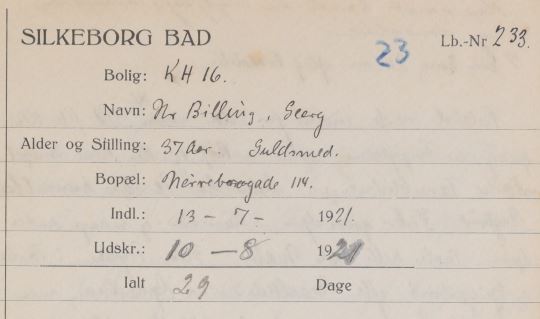 SILKEBORG BAD 23 Lb.-Nr 233.
Bolig: KH 16.
Navn: Hr Billing, Georg
Alder og Stilling: 37 Aar. Guldsmed.
Bopæl: Nørrebrogade 114.
Indl.: 13 - 7 - 1921.
Udskr.: 10 - 8 1921
Ialt 29 Dage